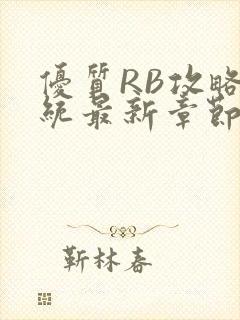 優質RB攻略
統最新章節
靳林春